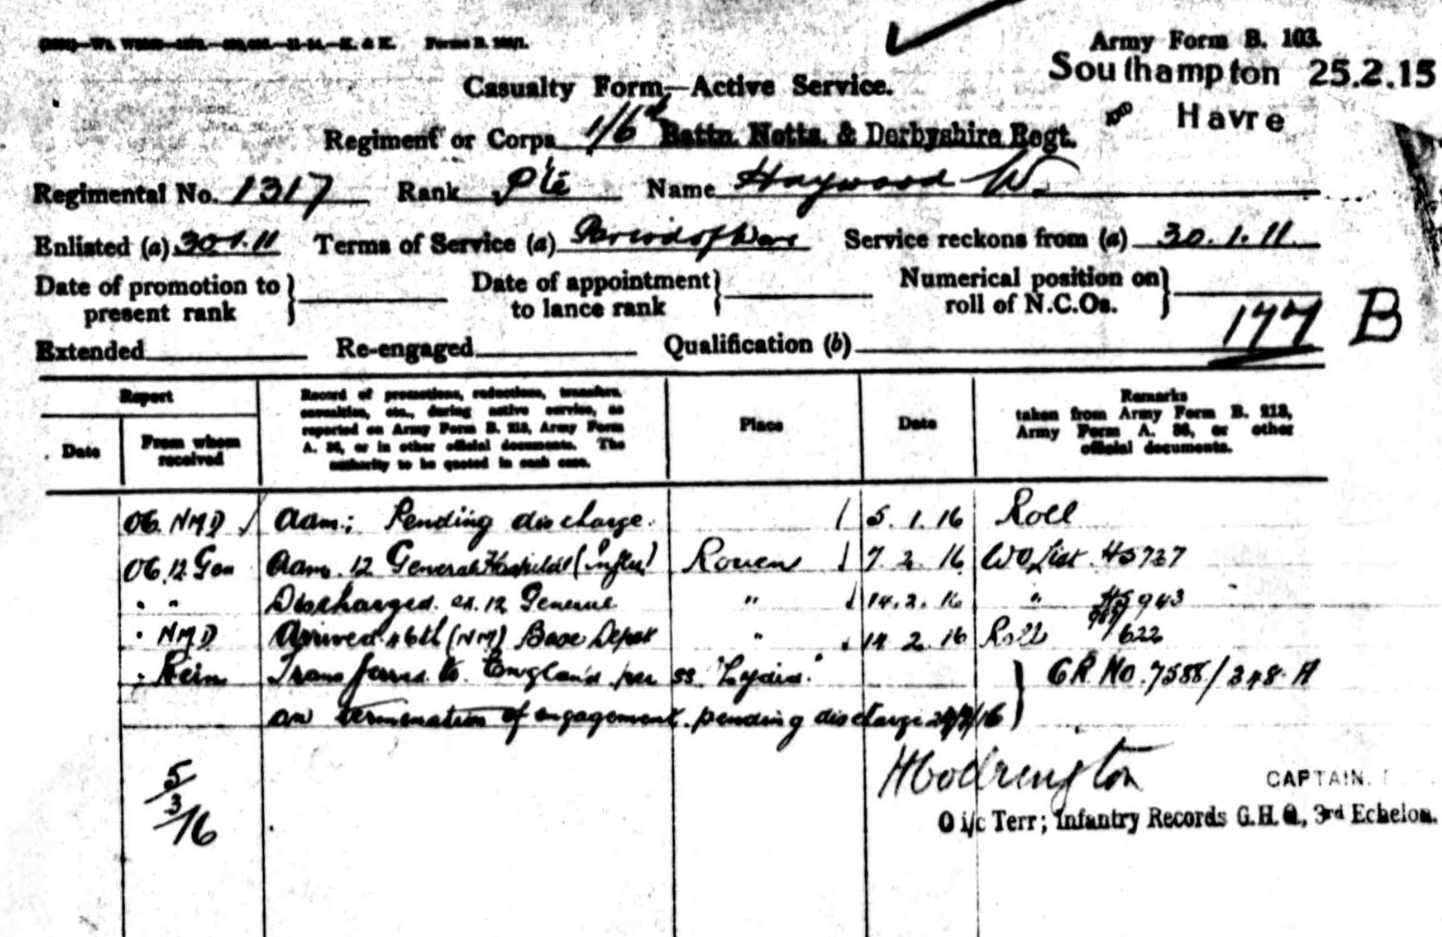 Forms B. 103/1.
Army Form B. 103.
Southampton 25.2.15
Casualty Form—Active Service.
Havre
Regiment or Corps 1/6th Battn. Notts. & Derbyshire Regt.
Regimental No. 1317 Rank Pte Name Haywood W.
Enlisted (a) 30.1.11 Terms of Service (a) Period of War Service reckons from (a) 30.1.11.
Date of promotion to present rank } Date of appointment to lance rank } Numerical position on roll of N.C.Os. }
177 B
Extended Re-engaged Qualification (b)
Report
Date
From whom received
Record of promotions, reductions, transfers, casualties, etc., during active service, as reported on Army Form B. 213, Army Form A. 36, or in other official documents. The authority to be quoted in each case.
Place
Date
Remarks taken from Army Form B. 213, Army Form A. 36, or other official documents.
OC. NMD Adm.; Pending discharge. 5.1.16 Roll
OC. 12 Gen Adm. 12 General Hospital (Influ) Rouen 7.2.16 WO List. H5727
" " Discharged ex. 12 General " 14.2.16 " 943
" NMD Arrived 46th (NM) Base Depot " 14.2.16 Roll 622
" Rein Transferred to England per ss "Lydia." } CR No. 7588/348 A
on termination of engagement. pending discharge /16
5/3/16
HCodrington CAPTAIN.
O i/c Terr; Infantry Records G.H.Q., 3rd Echelon.